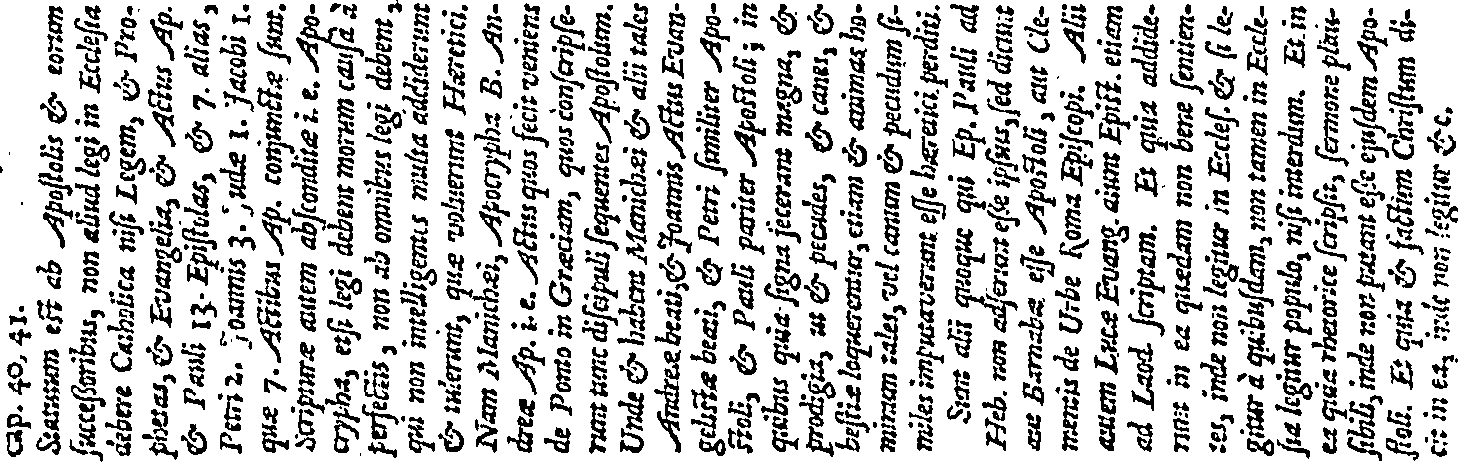 cap. 40, 41.
Statutum est ab Apostolis & eorum
successoribus, non aliud legi in Ecclesia
debere Catholica nisi Legem, & Pro-
phetas, & Evangelia, & Actus Ap.
& Pauli 13. Epistolas, & 7. alias,
Petri 2. Joannis 3. Judæ 1. Jacobi 1.
quæ 7. Actibus Ap. conjunctæ sunt.
Scripturæ autem absconditæ i. e. Apo-
crypha, etsi legi debent morum causâ à
perfectis, non ab omnibus legi debent,
qui non intelligentes multa addiderunt
& tulerunt, quæ voluerunt Hæretici.
Nam Manichæi, Apocrypha B. An-
dreæ Ap. i. e. Actis quos fecit veniens
de Ponto in Græciam, quos conscripse-
runt tunc discipuli sequentes Apostolum.
Unde & habent Manichæi & alii tales
Andreæ beati, & Joannis Actus Evan-
gelistæ beati, & Petri similiter Apo-
stoli, & Pauli pariter Apostoli; in
quibus quia signa fecerunt magna, &
prodigia, ut & pecudes, & canes, &
bestiæ loquerentur, etiam & animas ho-
minum tales, vel canum & pecudum si-
miles imputaverunt esse hæretici perditi.
Sunt alii quoque qui Ep. Pauli ad
Heb. non adserunt esse ipsius, sed dicunt
aut Barnabæ esse Apostoli, aut Cle-
mentis de Urbe Roma Episcopi. Alii
autem Lucæ Evang aiunt Epist. etiam
ad Laod scriptam. Et quia addide-
runt in ea quædam non bene sentien-
tes, inde non legitur in Eccles, & si le-
gitur à quibusdam, non tamen in Eccle-
sia legitur populo, nisi interdum. Et in
ea quia rhetorice scripsit, sermone plau-
sibili, inde non putant esse ejusdem Apo-
stoli. Et quia & factum Christum di-
cit in ea, inde non legitur &c.